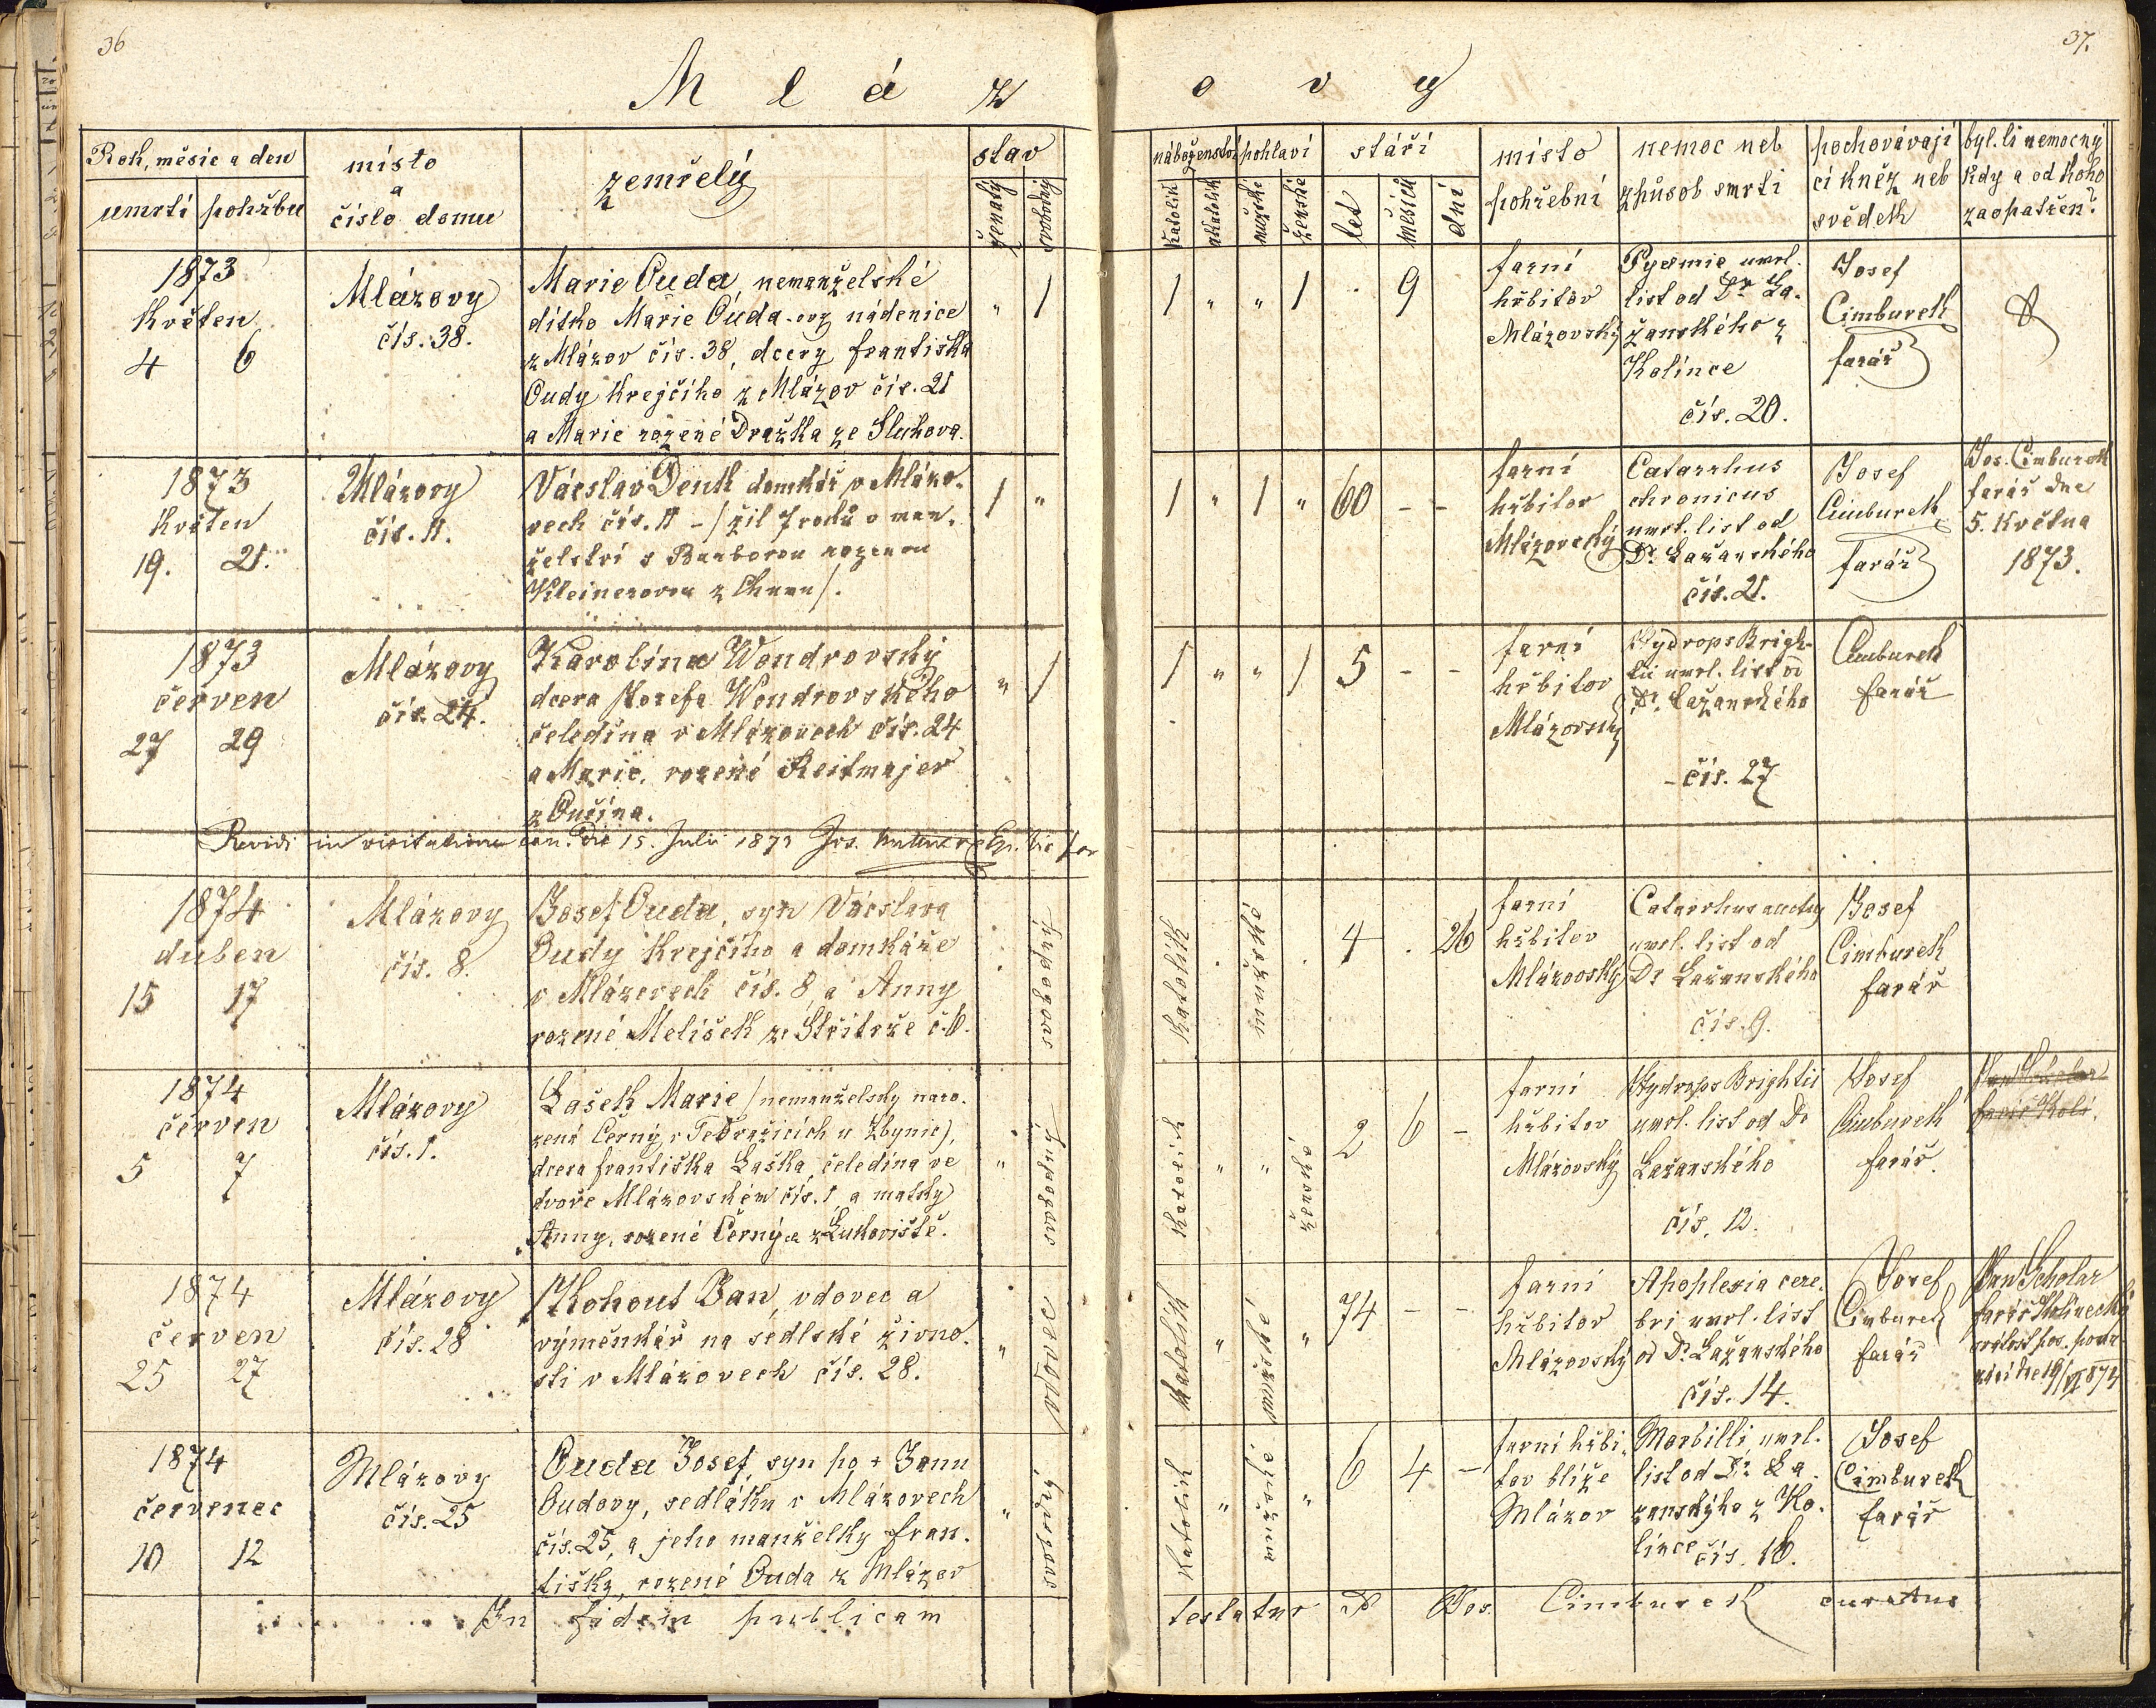 36
37.
M l á z
o v y
Rok, měsíc a den
umrtí
pohřbu
místo
a
číslo domu
zemřelý
stav
ženatý
svobodný
náboženství
katolík
akatolík
pohlaví
mužské
ženské
stáří
let
měsíců
dní
místo
pohřební
nemoc neb
způsob smrti
pochovávají
cí kněz neb
svědek
byl. li nemocný
kdy a od koho
zaopatřen?
1873
Květen
4 6
Mlázovy
čís. 38.
Marie Ouda, nemanželské
dítko Marie Ouda-ovy nádenice
z Mlázov čís. 38, dcery Františka
Oudy krejčího z Mlázov čís. 21
a Marie rozené Dražka ze Sluhova.
" 1
1 " " 1 . 9
farní
hřbitov
Mlázovský
Pyæmie umrl.
list od Dr La-
žanského z
Kolince
čís. 20.
Josef
Cimburek
farář
1873
Květen
19. 21.
Mlázovy
čís. 11.
Václav Denk domkář v Mlázo-
vech čís. 11 - / žil 7 roků v man-
želství s Barborou rozenou
Kleinerovou z /.
1 "
1 " 1 " 60 - -
farní
hřbitov
Mlázovský
Catarrhus
chronicus
umrt. list od
Dr. Lažanského
čís. 21.
Josef
Cimburek
farář
Jos. Cimburek
farář dne
5. Května
1873.
1873
červen
27 29
Mlázovy
čís. 24.
Karolína Wondrovský
dcera Josefa Wondrovského
čeledína v Mlázovech čís. 24
a Marie, rozené Reitmajer
z Onšína.
" 1
1 " " 1 5 - -
farní
hřbitov
Mlázovský
Hydrops Brigh-
tii umrl. list od
Dr. Lažanského
- čís. 27
Cimburek
farář
Revidi in visitatione can. die 15. Julii 1873 Jos.
1874
duben
15 17
Mlázovy
čís. 8.
Josef Ouda, syn Václava
Oudy krejčího a domkáře
v Mlázovech čís. 8 a Anny
rozené Melíšek ze Střiteže č. 6.
svobodný
katolík . mužského . 4 . 26
farní
hřbitov
Mlázovský
Catarrhus
umrl. list od
Dr Lažanského
čís. 9.
Josef
Cimburek
farář
1874
červen
5 7
Mlázovy
čís. 1.
Lašek Marie / nemanželsky naro-
zená Černý v Tedražicích u Zbynic),
dcera Františka Laška, čeledína ve
dvoře Mlázovském čís. 1, a matky
Anny, rozené Černý z Lukoviště.
" svobodný
katolík " " ženské 2 6 -
farní
hřbitov
Mlázovský
Hydrops Brightii
umrl. list od Dr
Lažanského
čís. 12.
Josef
Cimburek
farář.
1874
červen
25 27
Mlázovy
čís. 28
Kohout Jan, vdovec a
výměnkář na sedlské živno-
sti v Mlázovech čís. 28.
" vdovec
katolík " mužského " 74 - -
farní
hřbitov
Mlázovský
Apoplexia cere-
bri umrl. list
od Dr. Lažanského
čís. 14.
Josef
Cimburek
farář
Jan Scholar
farář Kolinecký
1874
červenec
10 12
Mlázovy
čís. 25
Ouda Josef, syn po + Janu
Oudovy, sedláku v Mlázovech
čís. 25, a jeho manželky Fran-
tišky, rozené Ouda z Mlázov
" svobodný
katolík " mužského " 6 4 -
farní hřbi-
tov blíže
Mlázov
Morbilli, umrl.
list od Dr. La-
žanskýho z Ko-
lince čís. 16.
Josef
Cimburek
farář
In fidem publicam
testatur P. Jos. Cimburek curatus